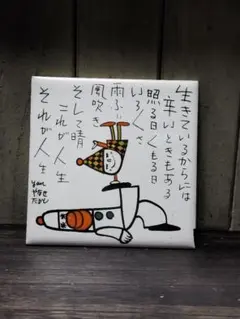 生きているからには
辛いときもある
照る日くもる日
いろいろさ
雨ふり
風吹き
そして晴
これが人生
それが人生
やなせたかし